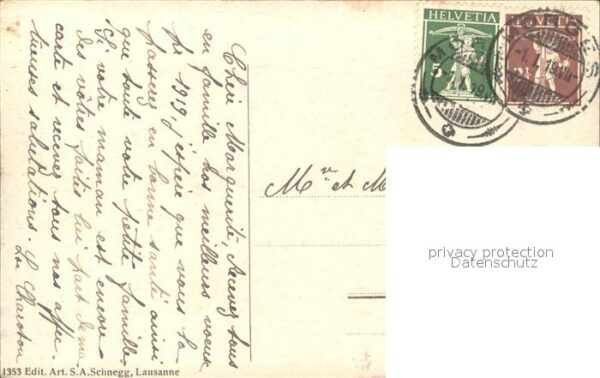 HELVETIA
HELVETIA
5
MORGES
-1.I.19
Chère Marguerite Recevez tous
en famille nos meilleurs voeux
pr 1919, j'espère que vous la
passerez en bonne santé ainsi
que toute votre petite famille.
Si votre maman est encore
des vôtres faites lui part de ma
carte et recevez tous nos affec-
tueuses salutations.
Mr et M
privacy protection
Datenschutz
1353 Edit. Art. S.A.Schnegg, Lausanne